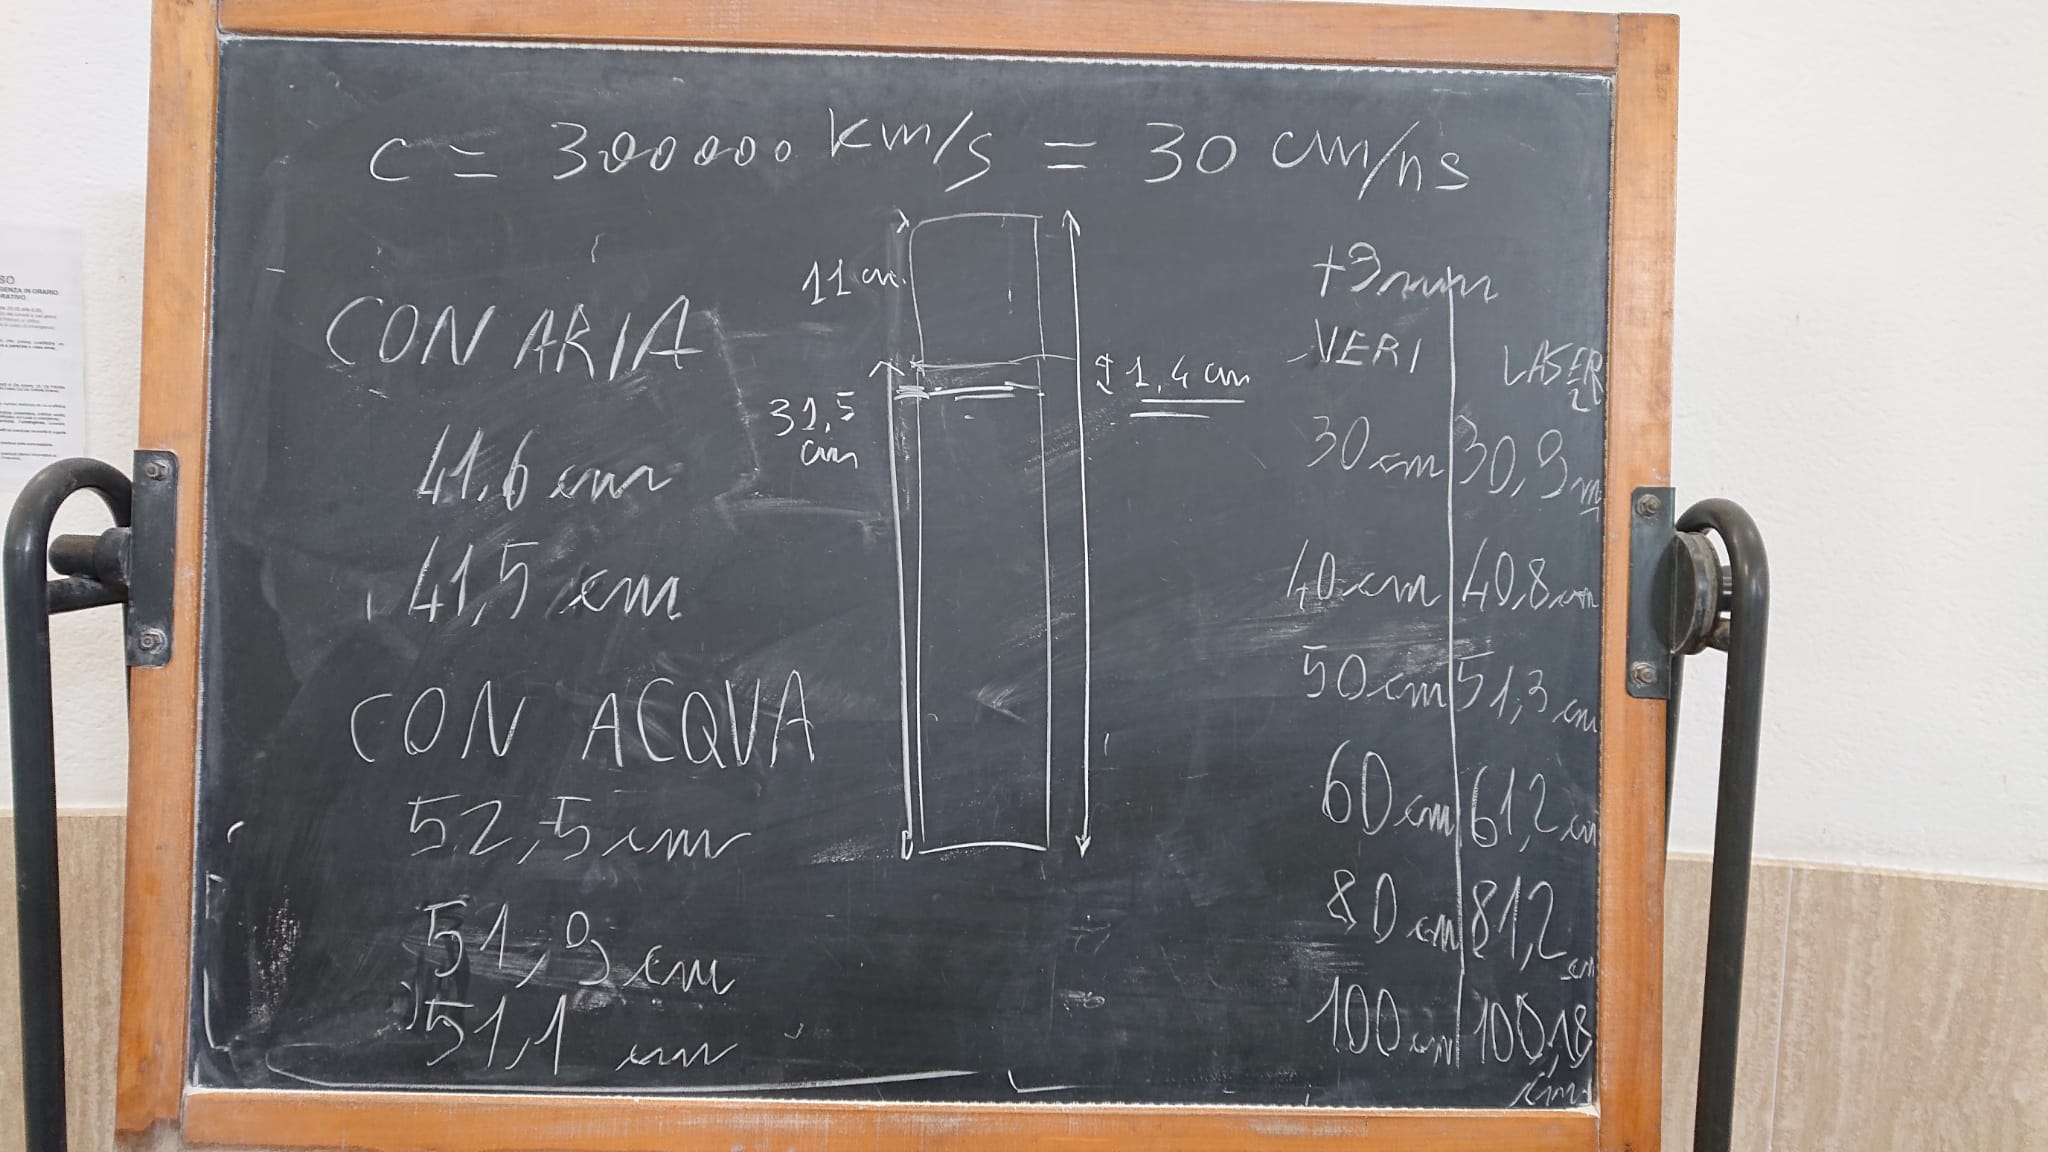 c = 300000 km/s = 30 cm/ns
CON ARIA
41,6 cm
41,5 cm
CON ACQUA
52,5 cm
51,9 cm
51,1 cm
11 cm
31,5 cm
41,4 cm
+9mm
VERI LASER 2
30 cm 30,9
40 cm 40,8 cm
50 cm 51,3 cm
60 cm 61,2 cm
80 cm 81,2 cm
100 cm
cm